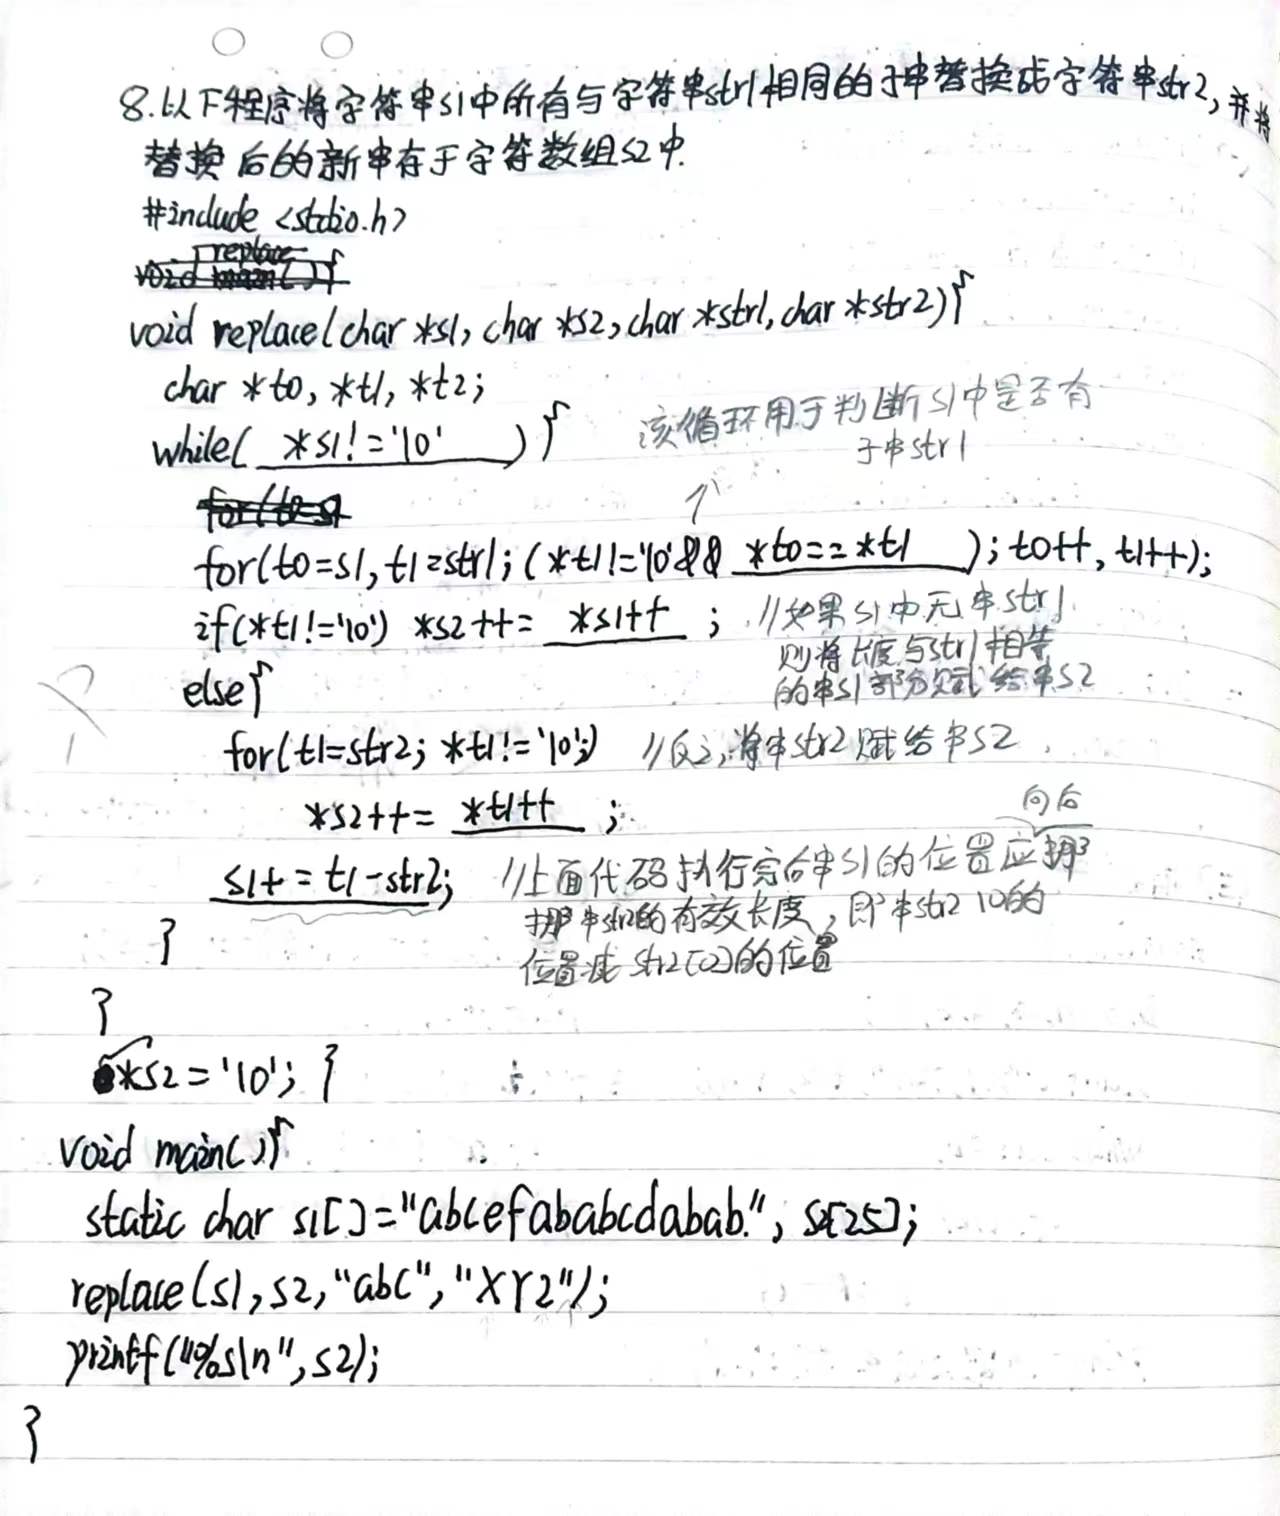 8.以下程序将字符串s1中所有与字符串str1相同的子串替换成字符串str2,并将
替换后的新串存于字符数组s2中.
#include <stdio.h>
void replace(char *s1, char *s2, char *str1, char *str2){
char *t0, *t1, *t2;
while( *s1!='\0' ){
该循环用于判断s1中是否有
子串str1
for(t0=s1, t1=str1; (*t1!='\0'&& *t0==*t1 ); t0++, t1++);
if(*t1!='\0') *s2++= *s1++ ; //如果s1中无串str1
则将长度与str1相等
的串s1部分赋给串s2
else{
for(t1=str2; *t1!='\0';) //反之,将串str2赋给串s2
*s2++= *t1++ ;
向后
s1+=t1-str2; //上面代码执行完后串s1的位置应挪
挪串str2的有效长度,即串str2 \0的
位置减str2[0]的位置
}
}
*s2='\0'; }
void main(){
static char s1[]="abcefababcdabab.", s2[25];
replace(s1, s2, "abc", "XYZ");
printf("%s\n", s2);
}